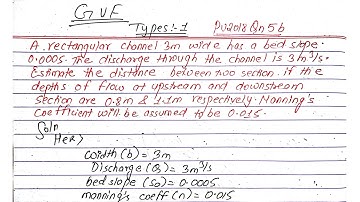 GVF
Types:-1 PU2018 Qn 5b
A rectangular channel 3m wide has a bed slope.
0.0005. The discharge through the channel is 3m³/s.
Estimate the distance between two section. if the
depths of flow at upstream and downstream
section are 0.8m & 1.1m respectively. Manning's
coefficient will be assumed to be 0.015.
Soln
Here,
width (b) = 3m
Discharge (Q) = 3m³/s
bed slope (S₀) = 0.0005
manning's coeff (n) = 0.015